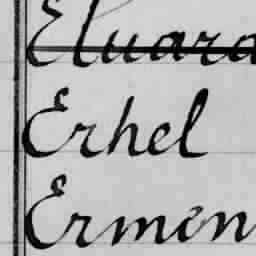 Eluard
Erhel
Ermen